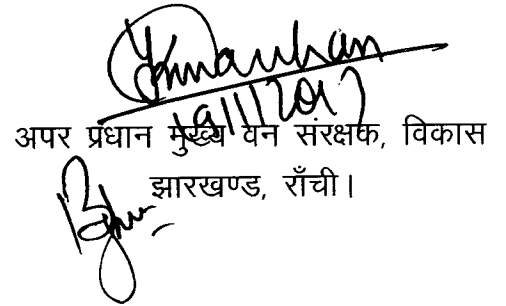 19/1/2017
अपर प्रधान मुख्य वन संरक्षक, विकास
झारखण्ड, राँची।